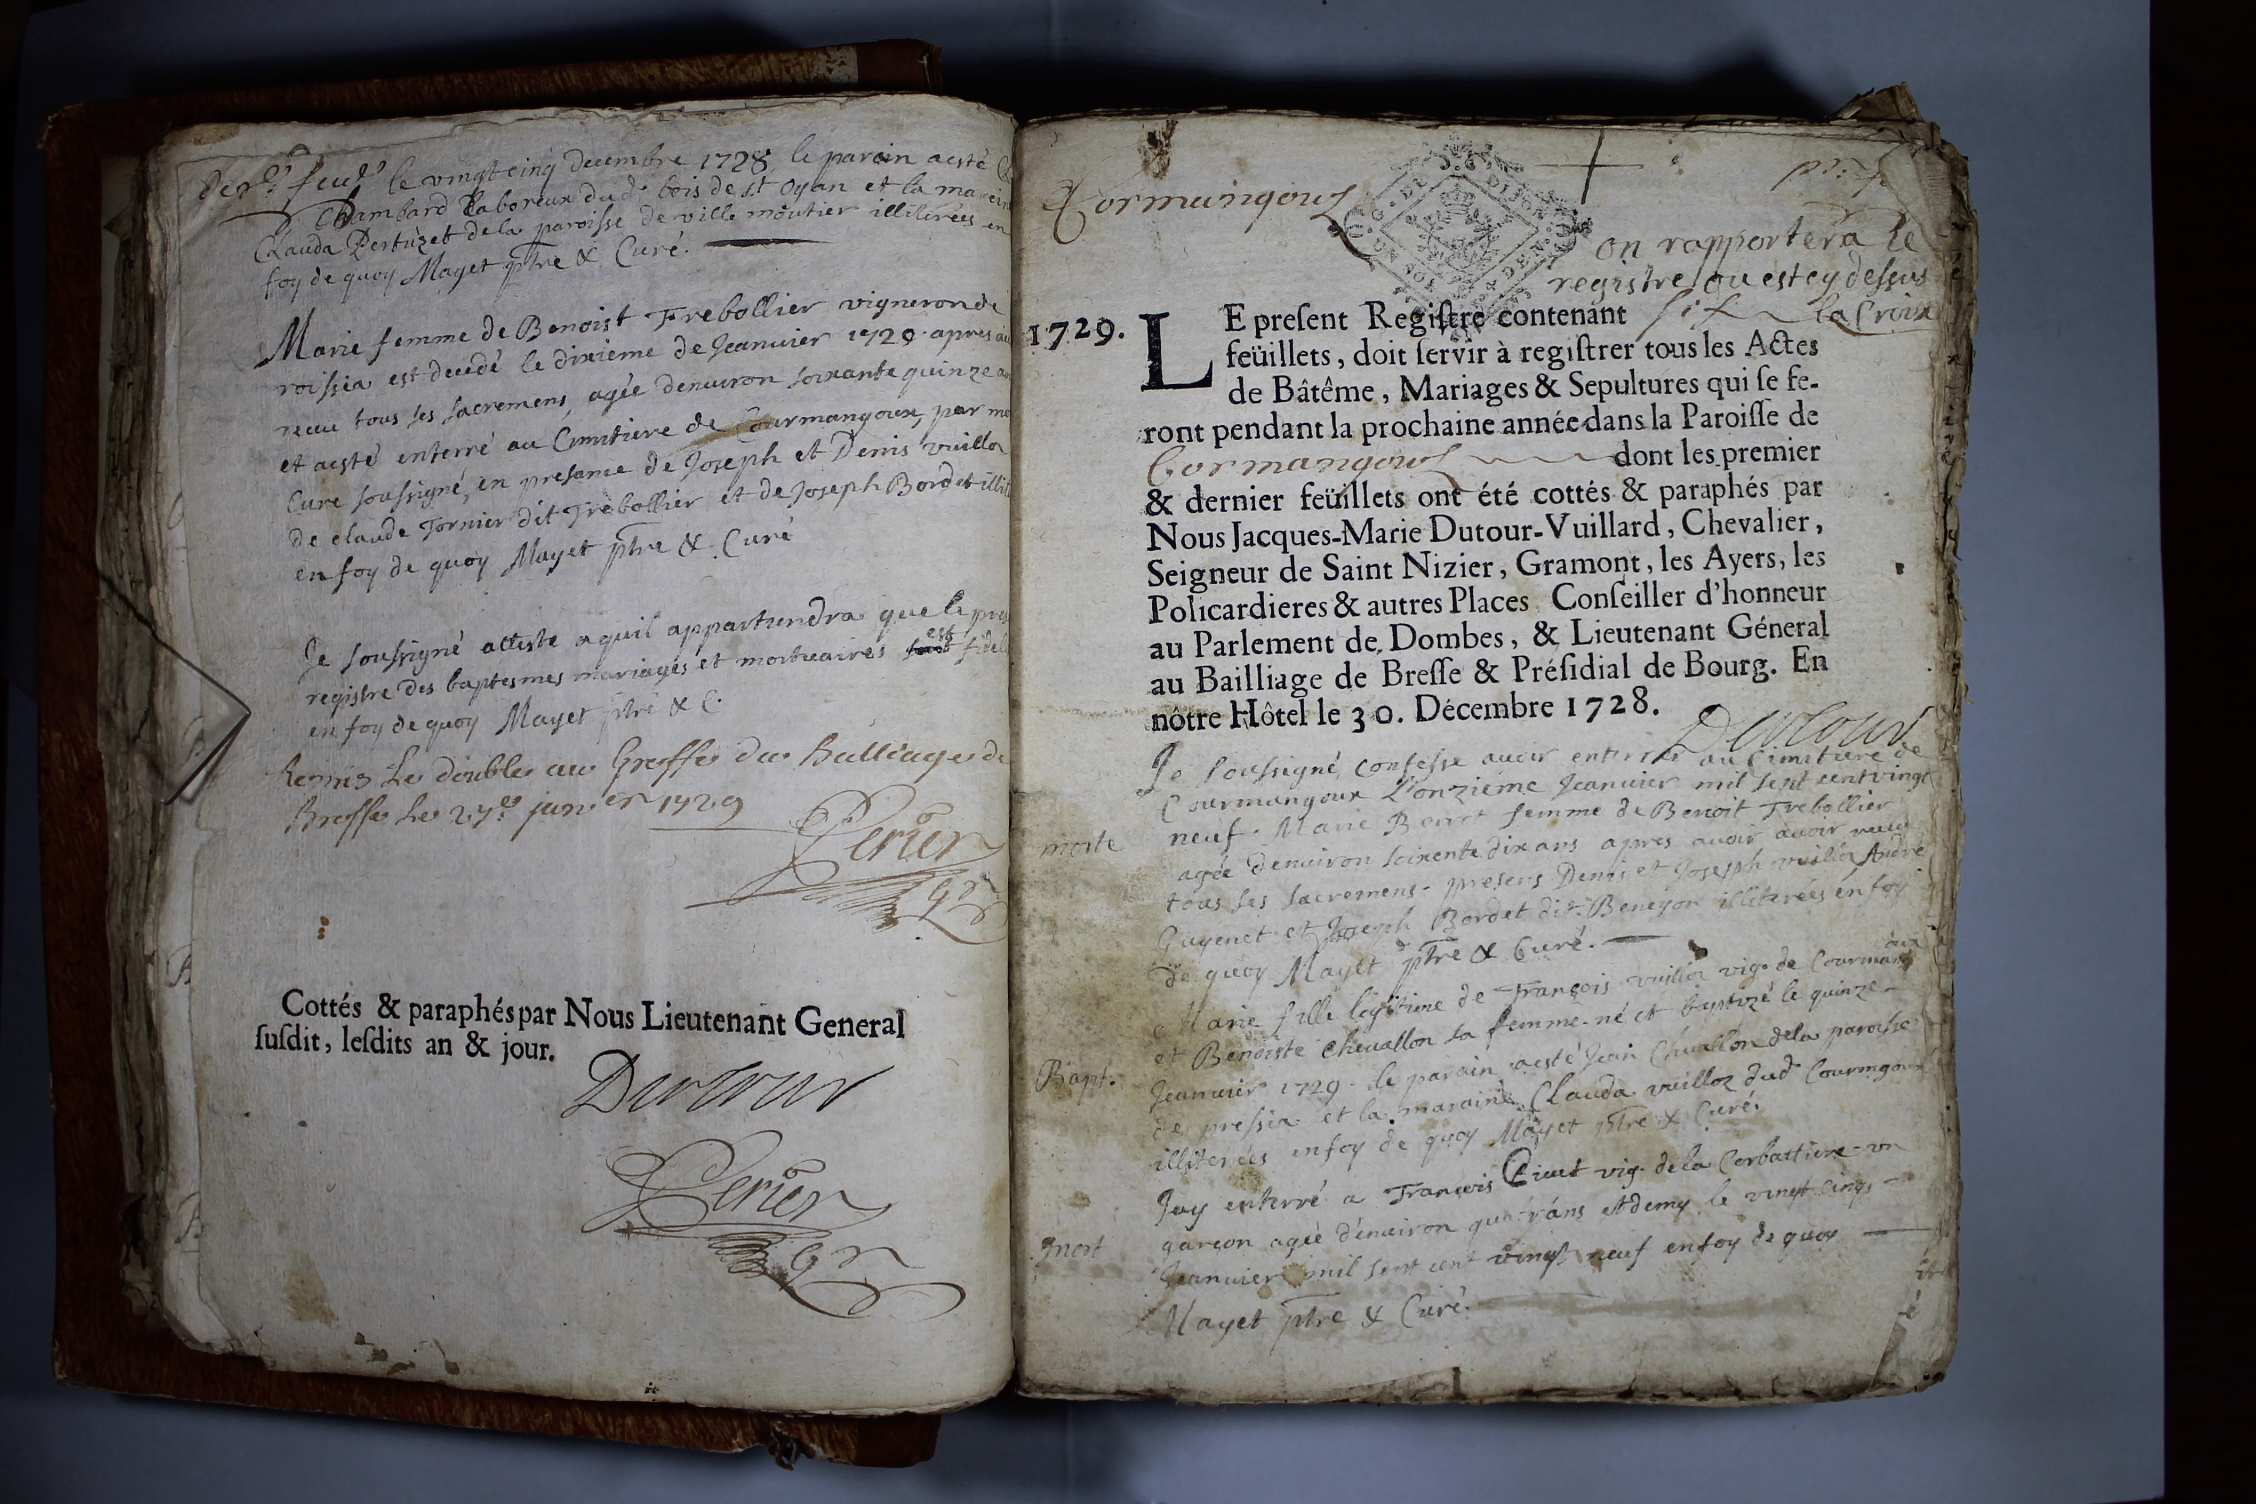 le vingt cinq decembre 1728 le parain a esté
Chambard laboreux dud. bois de st Oyan et la marein
Clauda Pertuzet de la paroisse de ville moutier illiterées en
foy de quoy Mayet ptre & Curé.
Marie femme de Benoist Trebollier vigneron de
roissia est decedé le dixieme de Jeanvier 1729 apres
receu tous ses sacremens, agée denuiron soixante quinze
et a esté enterré au Cimitiere de Courmangoux, par
Curé soussigné, en presance de Joseph et Denis vuillo
de claude Tornier dit Trebollier et de Joseph Bordet
en foy de quoy Mayet ptre & Curé
Je soussigné atteste a quil appartiendra que le
registre des baptesmes mariages et mortuaires est
en foy de quoy Mayet ptre & C.
Remis Le double au Greffe du Balliage de
Bresse Le 27e janer 1729
Perier
Cottés & paraphés par Nous Lieutenant General
ſuſdit, leſdits an & jour.
Dutour
Perier
Cormangoux
on rapportera le
registre ou est cy dessus
la Croix
1729. LE preſent Regiſtre contenant six
feüillets, doit ſervir à regiſtrer tous les Actes
de Bâtême, Mariages & Sepultures qui ſe fe-
ront pendant la prochaine année dans la Paroiſſe de
Cormangoux dont les premier
& dernier feüillets ont été cottés & paraphés par
Nous Jacques-Marie Dutour-Vuillard, Chevalier,
Seigneur de Saint Nizier, Gramont, les Ayers, les
Policardieres & autres Places Conſeiller d'honneur
au Parlement de Dombes, & Lieutenant Géneral
au Bailliage de Breſſe & Préſidial de Bourg. En
nôtre Hôtel le 30. Décembre 1728.
Dutour
Je soussigné confesse avoir enterré au Cimitiere de
Courmangoux L'onzieme Jeanvier mil sept cent vingt
neuf. Marie femme de Benoit Trebollier
morte
agée denuiron soixente dix ans apres avoir avoir receu
tous ses sacremens. presens Denis et Joseph vuilloz André
Guyenet et Joseph Bordet dit Beneyon illiterées en foy
de quoy Mayet ptre & Curé.
Marie fille legitime de François vuilloz vig. de Courmang
oux
et Benoiste Chevallon sa femme né et baptizé le quinze
Bapt.
Jeanvier 1729. le parain a esté Jean Chevallon de la paroisse
de pressia et la maraine Clauda vuilloz dud Courmgoux
illiterées en foy de quoy Mayet ptre & Curé.
Jay enterré a François vig. de la Corbattiere un
garcon agée d'enuiron quatr'ans et demy le vingt cinq
mort
Jeanvier mil sept cent vingt neuf en foy de quoy
Mayet ptre & Curé.